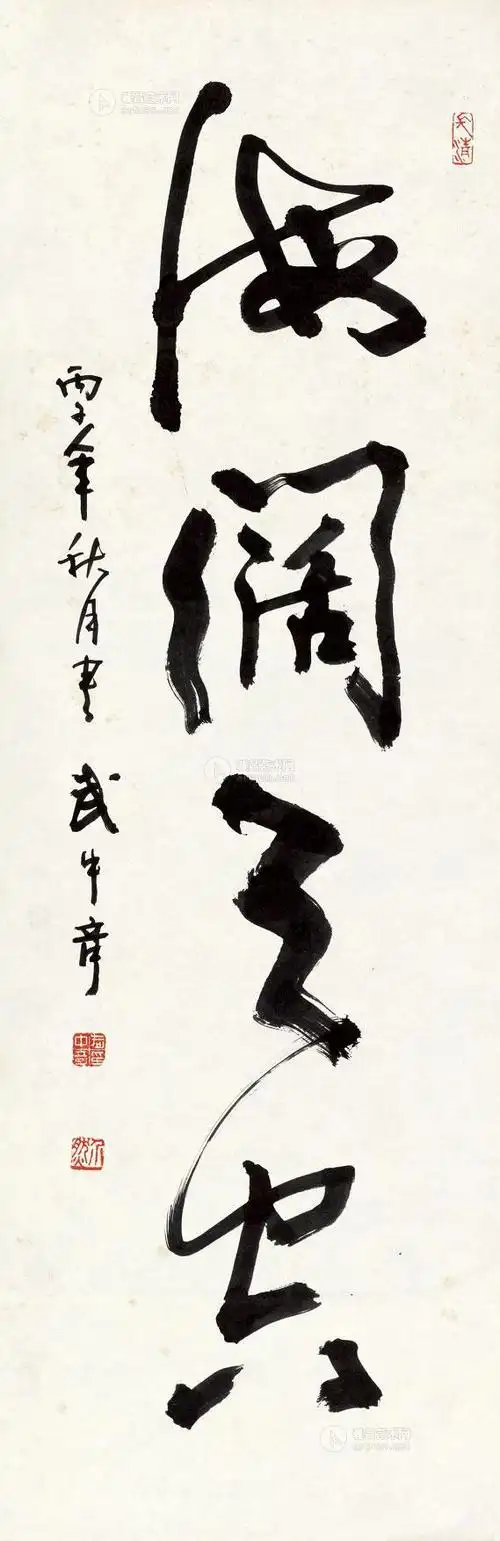 海闊天空
丙子年秋月書 武中奇